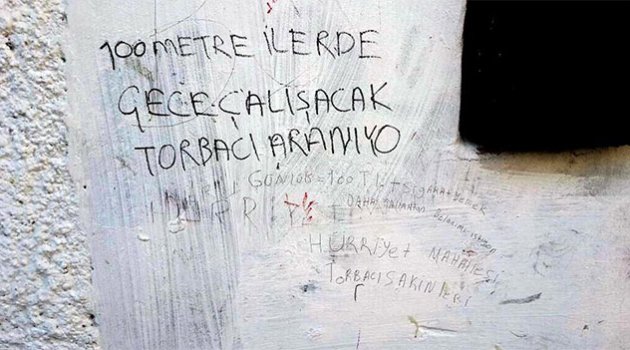 100 METRE İLERDE
GECE ÇALIŞACAK
TORBACI ARANIYO
GÜNLÜK = 100 TL + SİGARA + YEMEK
HÜRRİYET
HÜRRİYet MAHALLESİ
TORBACI SAKİNLERİ